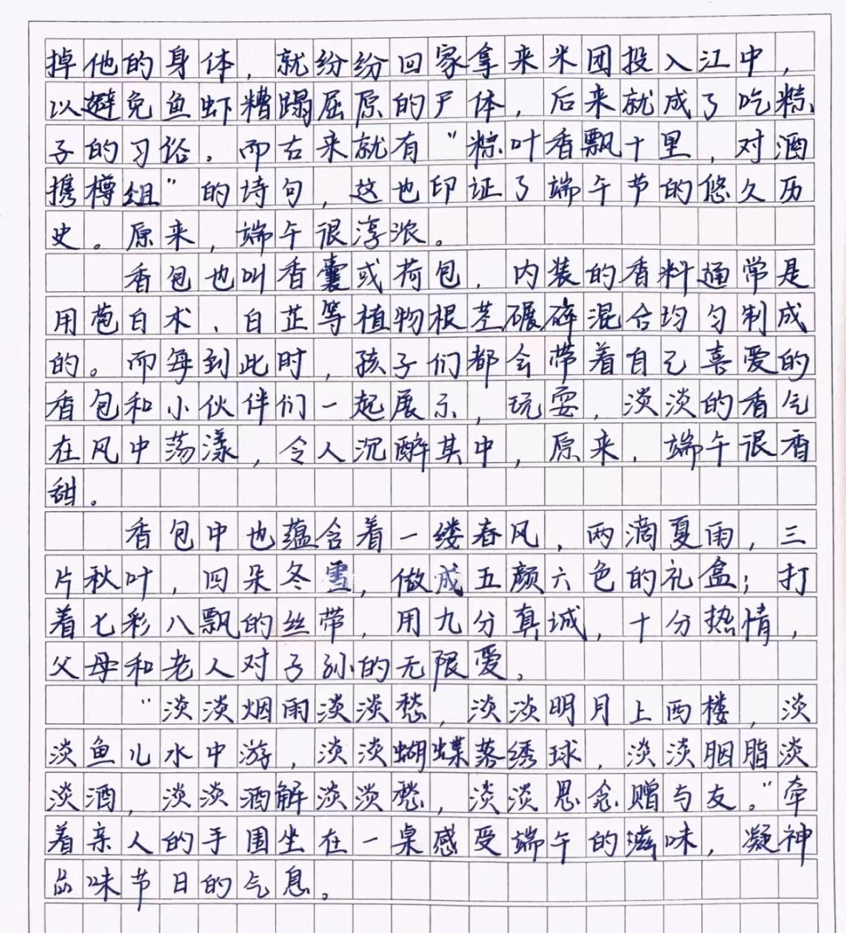 掉他的身体，就纷纷回家拿来米团投入江中，
以避免鱼虾糟蹋屈原的尸体，后来就成了吃粽
子的习俗。而古来就有“粽叶香飘十里，对酒
携樽俎”的诗句，这也印证了端午节的悠久历
史。原来，端午很淳浓。
香包也叫香囊或荷包，内装的香料通常是
用苞白术、白芷等植物根茎碾碎混合均匀制成
的。而每到此时，孩子们都会带着自己喜爱的
香包和小伙伴们一起展示，玩耍，淡淡的香气
在风中荡漾，令人沉醉其中，原来，端午很香
甜。
香包中也蕴含着一缕春风，两滴夏雨，三
片秋叶，四朵冬雪，做成五颜六色的礼盒；打
着七彩八飘的丝带，用九分真诚，十分热情，
父母和老人对子孙的无限爱。
“淡淡烟雨淡淡愁，淡淡明月上西楼，淡
淡鱼儿水中游，淡淡蝴蝶落绣球，淡淡胭脂淡
淡酒，淡淡酒解淡淡愁，淡淡思念赠与友。”牵
着亲人的手围坐在一桌感受端午的滋味，凝神
品味节日的气息。